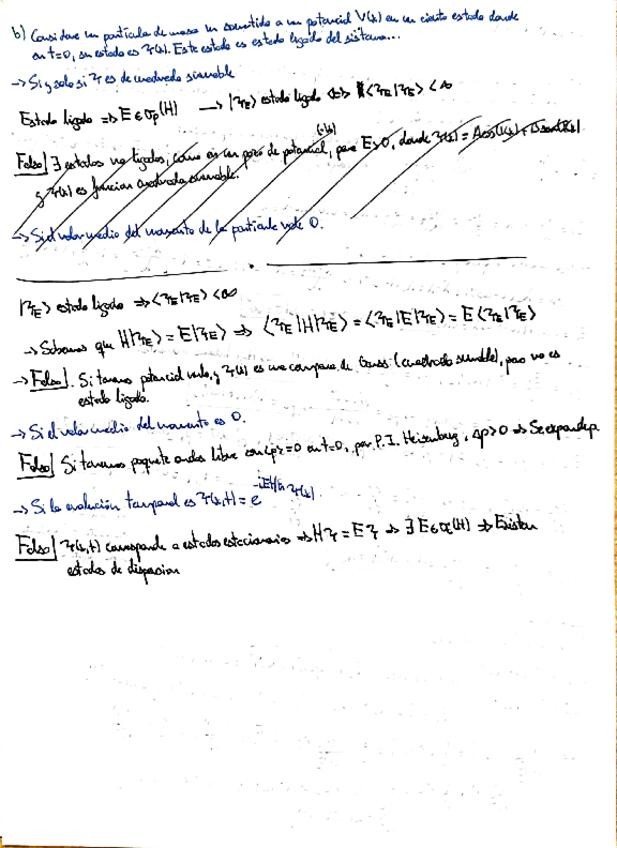 b) Considere un partícula de masa m sometido a un potencial V(x) en un cierto estado donde
en t=0, su estado es Ψ(x). Este estado es estado ligado del sistema...
→ Si y solo si Ψ es de cuadrado sumable
Estado ligado ⇒ E ∈ σp(H) → |Ψ_E> estado ligado ⇔ <Ψ_E|Ψ_E> < ∞
Falso] ∃ estados no ligados, como en un pozo de potencial, para E>0, donde Ψ(x) =
y Ψ(x) es función cuadrado sumable.
→ Si el valor medio del momento de la partícula vale 0.
|Ψ_E> estado ligado ⇒ <Ψ_E|Ψ_E> < ∞
→ Sabemos que H|Ψ_E> = E|Ψ_E> ⇒ <Ψ_E|H|Ψ_E> = <Ψ_E|E|Ψ_E> = E<Ψ_E|Ψ_E>
→ Falso]. Si tenemos potencial nulo, y Ψ(x) es una campana de Gauss (cuadrado sumable), pero no es
estado ligado.
→ Si el valor medio del momento es 0.
Falso] Si tenemos paquete ondas libre con <p>=0 en t=0, por P.I. Heisenberg, Δp>0 ⇒ Se expande
→ Si la evolución temporal es Ψ(x,t) = e^{-iEt/ħ} Ψ(x).
Falso] Ψ(x,t) corresponde a estados estacionarios ⇒ HΨ = EΨ ⇒ ∃ E ∈ σc(H) ⇒ Existen
estados de dispersión